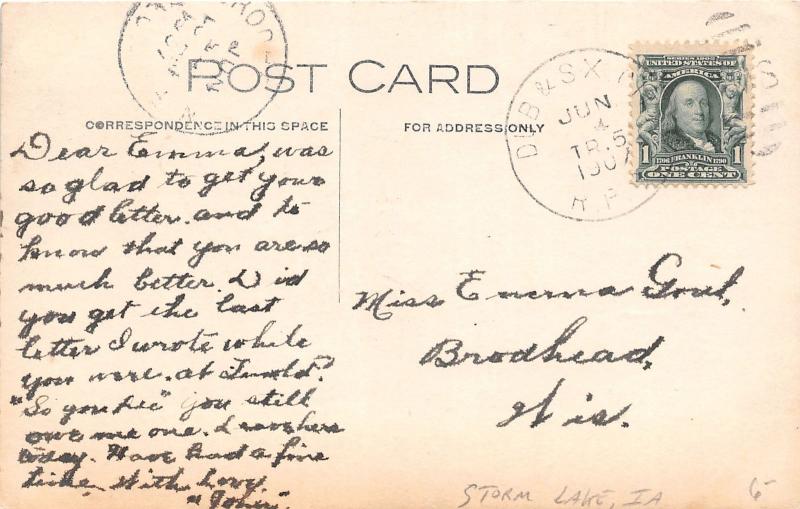 POST CARD
CORRESPONDENCE IN THIS SPACE
FOR ADDRESS ONLY
DUB & SX
JUN
4
TR. 5
1907
R.P.
SERIES 1902
UNITED STATES OF
AMERICA
1706 FRANKLIN 1790
1 1
POSTAGE
ONE CENT
Dear Emma, was
so glad to get your
good letter. and to
know that you are so
much better. Did
you get the last
letter I wrote while
you were. at
"So you see" you still
owe me one. leave here
today. Have had a fine
time. With love,
"John"
Miss Emma
Brodhead,
Wis.
STORM LAKE, IA
6-